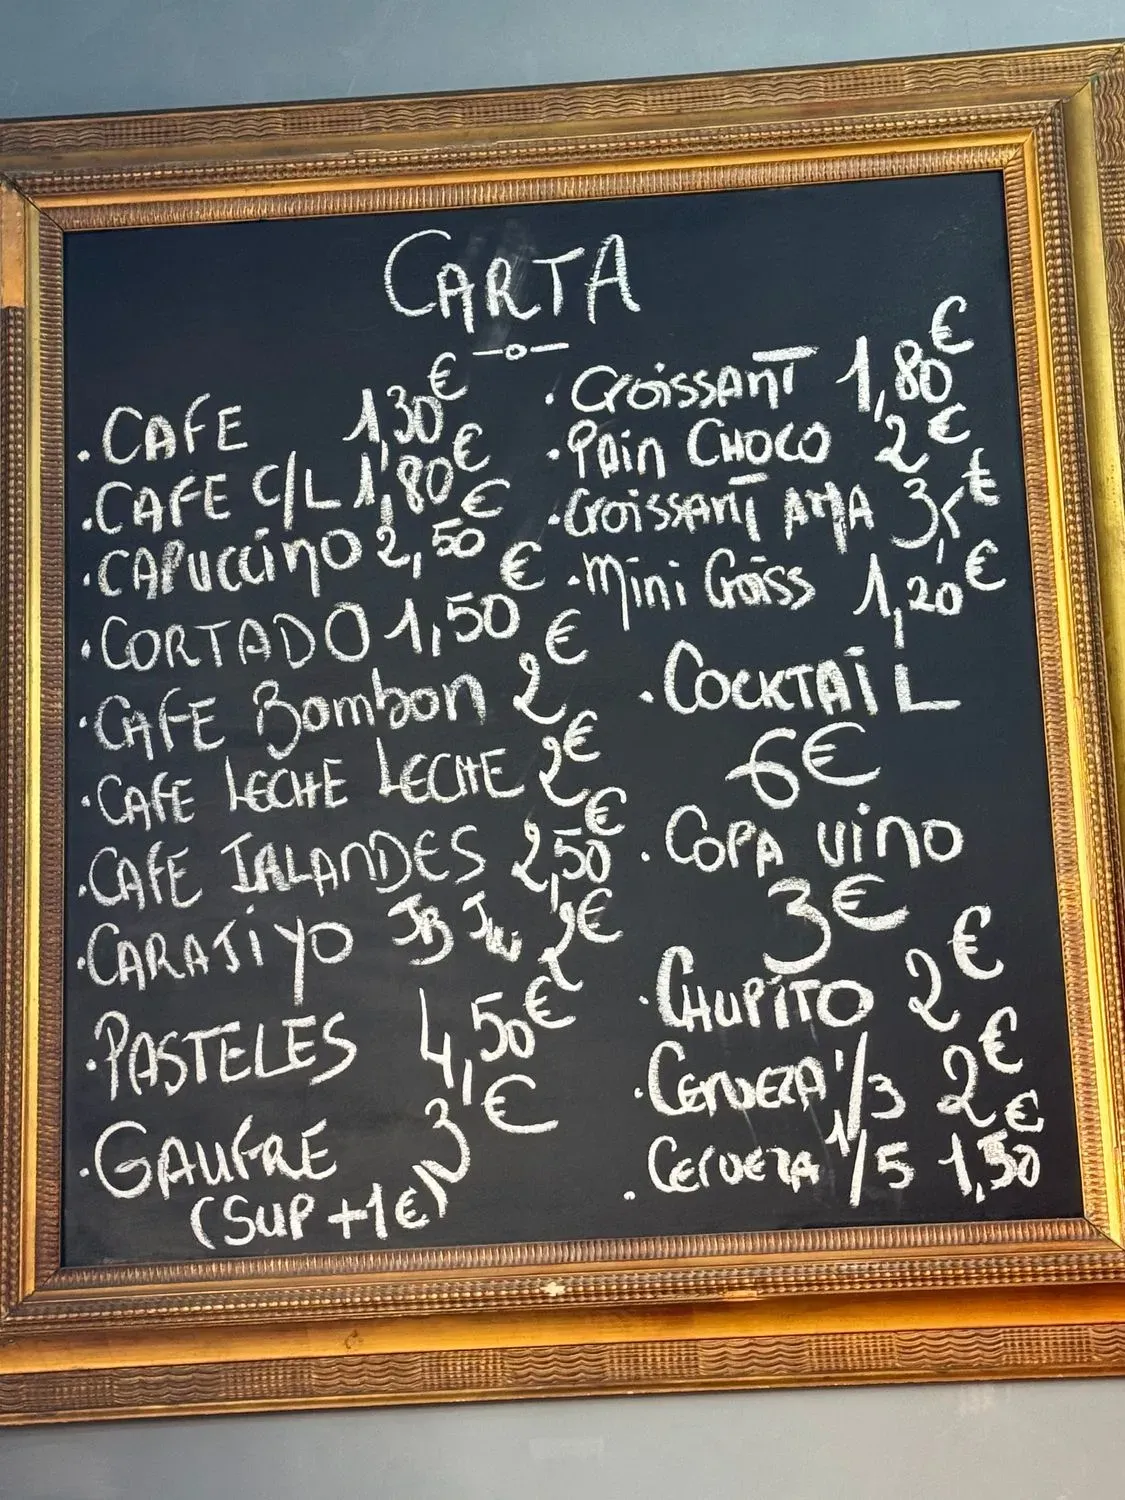 CARTA
. CAFE 1,30€
. CAFE C/L 1,80€
. CAPUCCINO 2,50€
. CORTADO 1,50€
. CAFE Bombon 2€
. CAFE LECHE LECHE 2€
. CAFE IRLANDES 2,50€
. CARAJIYO JB 2€
. PASTELES 4,50€
. GAUFRE 3€
(SUP +1€)
. Croissant 1,80€
. Pain CHOCO 2€
. Croissant AMA 3,€
. Mini Croiss 1,20€
. COCKTAIL
6€
. COPA vino
3€
. CHUPITO 2€
. CERVEZA 1/3 2€
. CERVEZA 1/5 1,50€